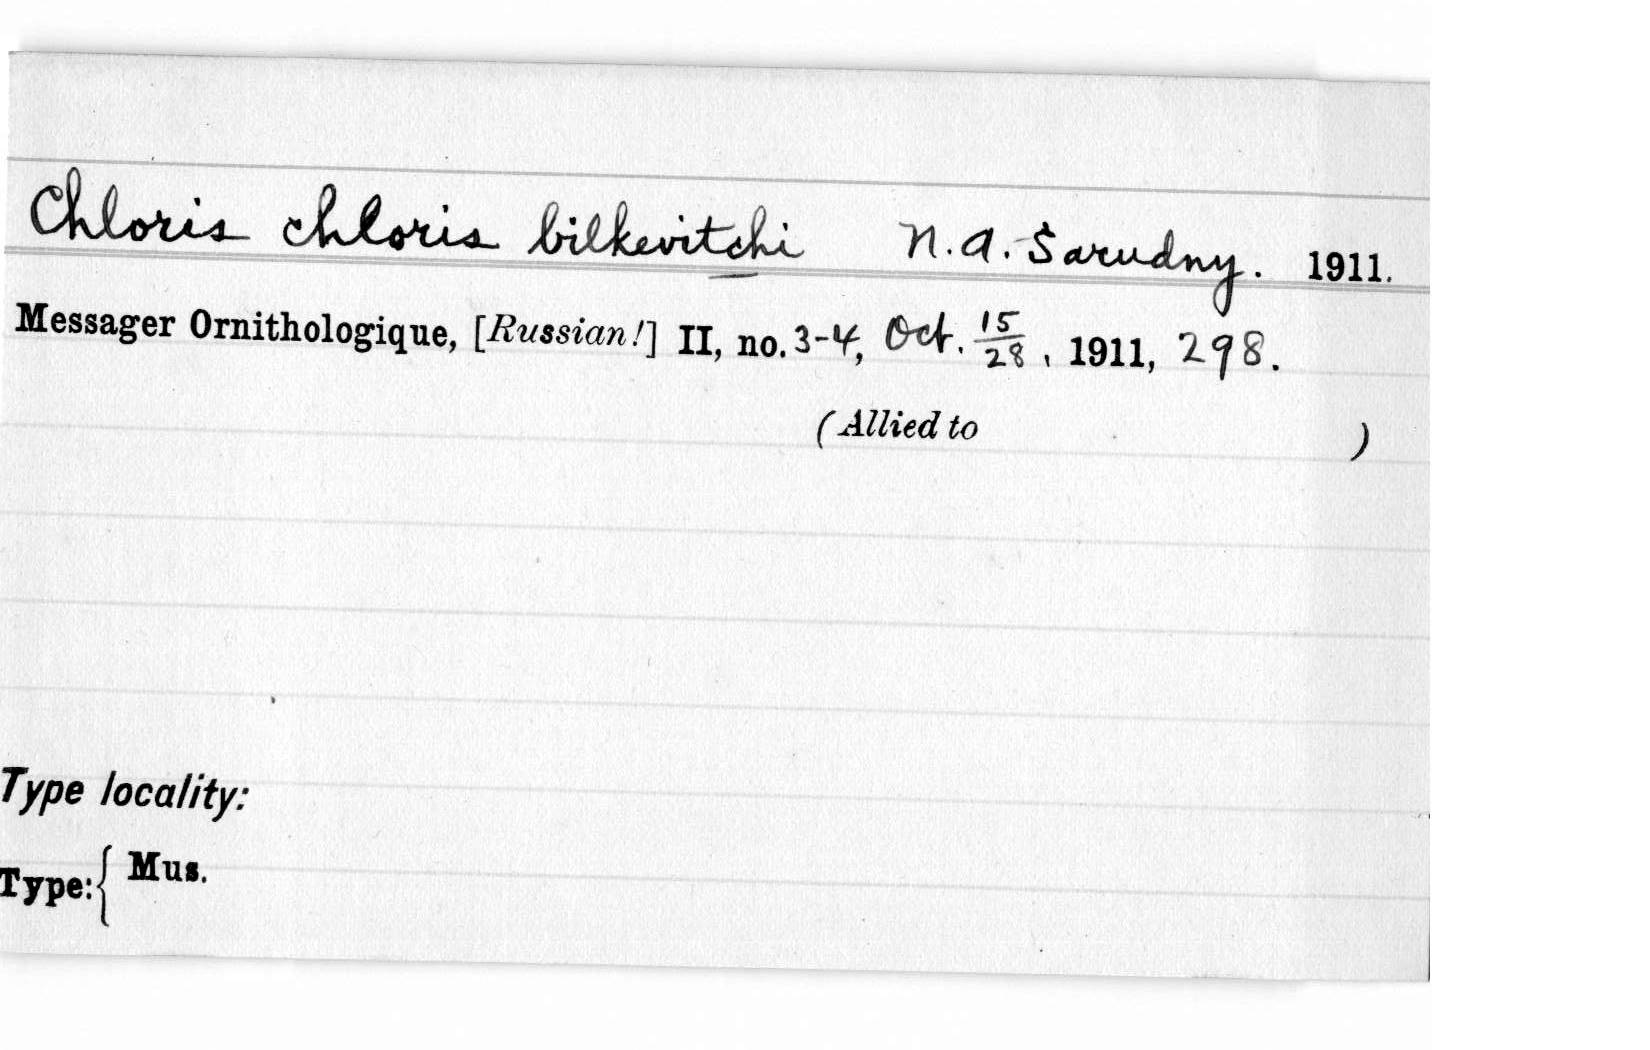 Chloris chloris bilkevitchi N. A. Sarudny. 1911.
Messager Ornithologique, [Russian!] II, no. 3-4, Oct. 15/28, 1911, 298.
(Allied to )
Type locality:
Type: { Mus.